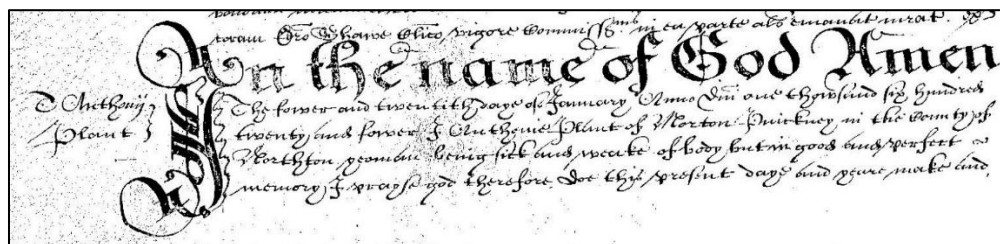 coram Shawe Clico vigore Commiss in ea parte als emanavit jurat.
In the name of God Amen
T Anthonij
Plant
The fower and twentith daye of January Anno Dni one thowsand six hundred
twenty and fower I Anthonie Plant of Morton Pinckney in the County of
Northton yeoman being sick and weake of body but in good and perfect
memory I prayse god therefore doe this present daye and yeare make and